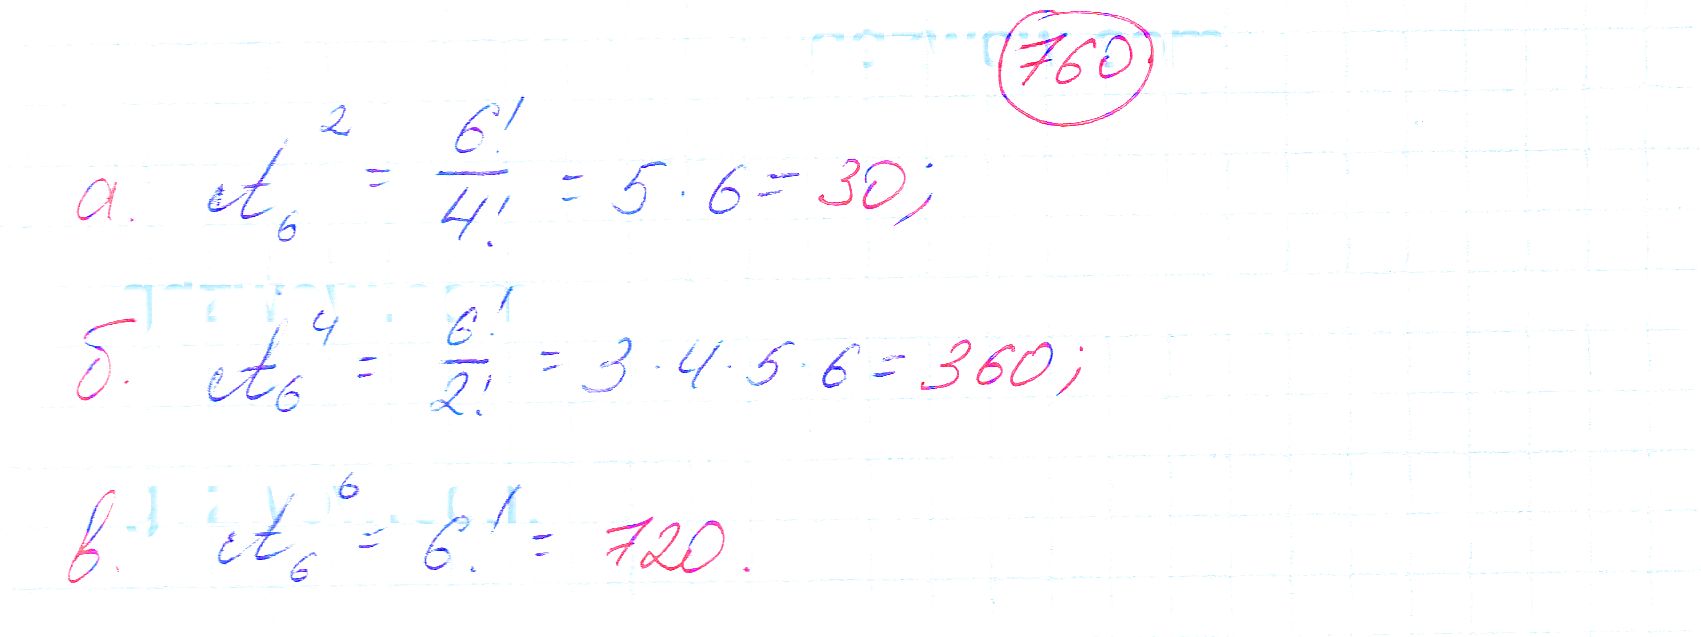 760
а. A₆² = 6!/4! = 5 · 6 = 30;
б. A₆⁴ = 6!/2! = 3 · 4 · 5 · 6 = 360;
в. A₆⁶ = 6! = 720.